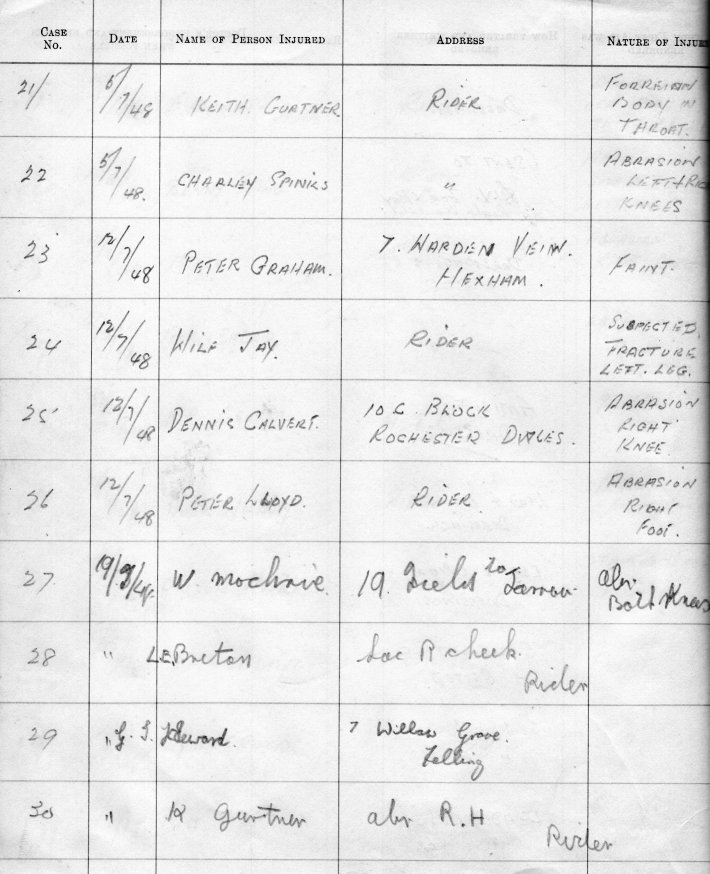 CASE No. DATE NAME OF PERSON INJURED ADDRESS NATURE OF INJUR
21/ 5/7/48 KEITH. GURTNER RIDER FORREIAN
BODY IN
THROAT.
22 5/7/48. CHARLEY SPINKS " ABRASION
LEFT + RIG
KNEES
23 12/7/48 PETER GRAHAM. 7. WARDEN VEIW. FAINT.
HEXHAM.
24 12/7/48 WILF JAY. RIDER SUSPECTED.
FRACTURE
LEFT. LEG.
25 12/7/48 DENNIS CALVERT. 10 C. BLOCK ABRASION
ROCHESTER DWLES. RIGHT
KNEE
26 12/7/48 PETER LLOYD. RIDER ABRASION
RIGHT
FOOT.
27 19/7/48 W. Mochrie. 19. Field Jarrow abr
Both Knees
28 " LE.Breton Lac R cheek.
Rider
29 " 7 Willow Grove.
Felling
30 " K Gurtner abr R.H
Rider